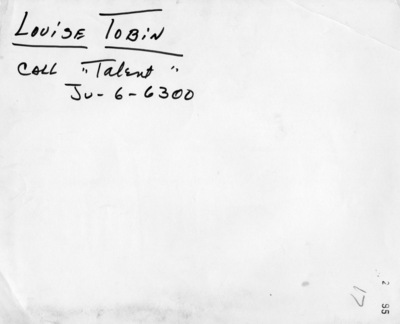 LOUISE TOBIN
CALL "Talent"
JU-6-6300
2 95
17